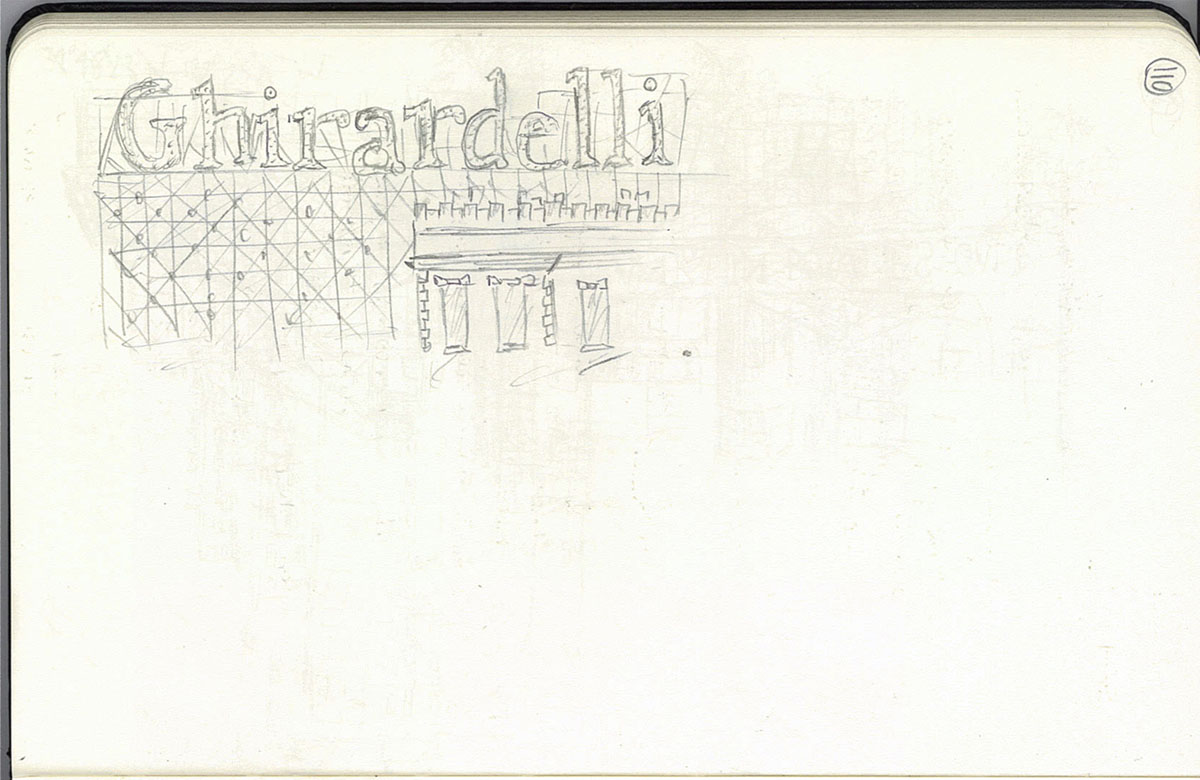 Ghirardelli
110